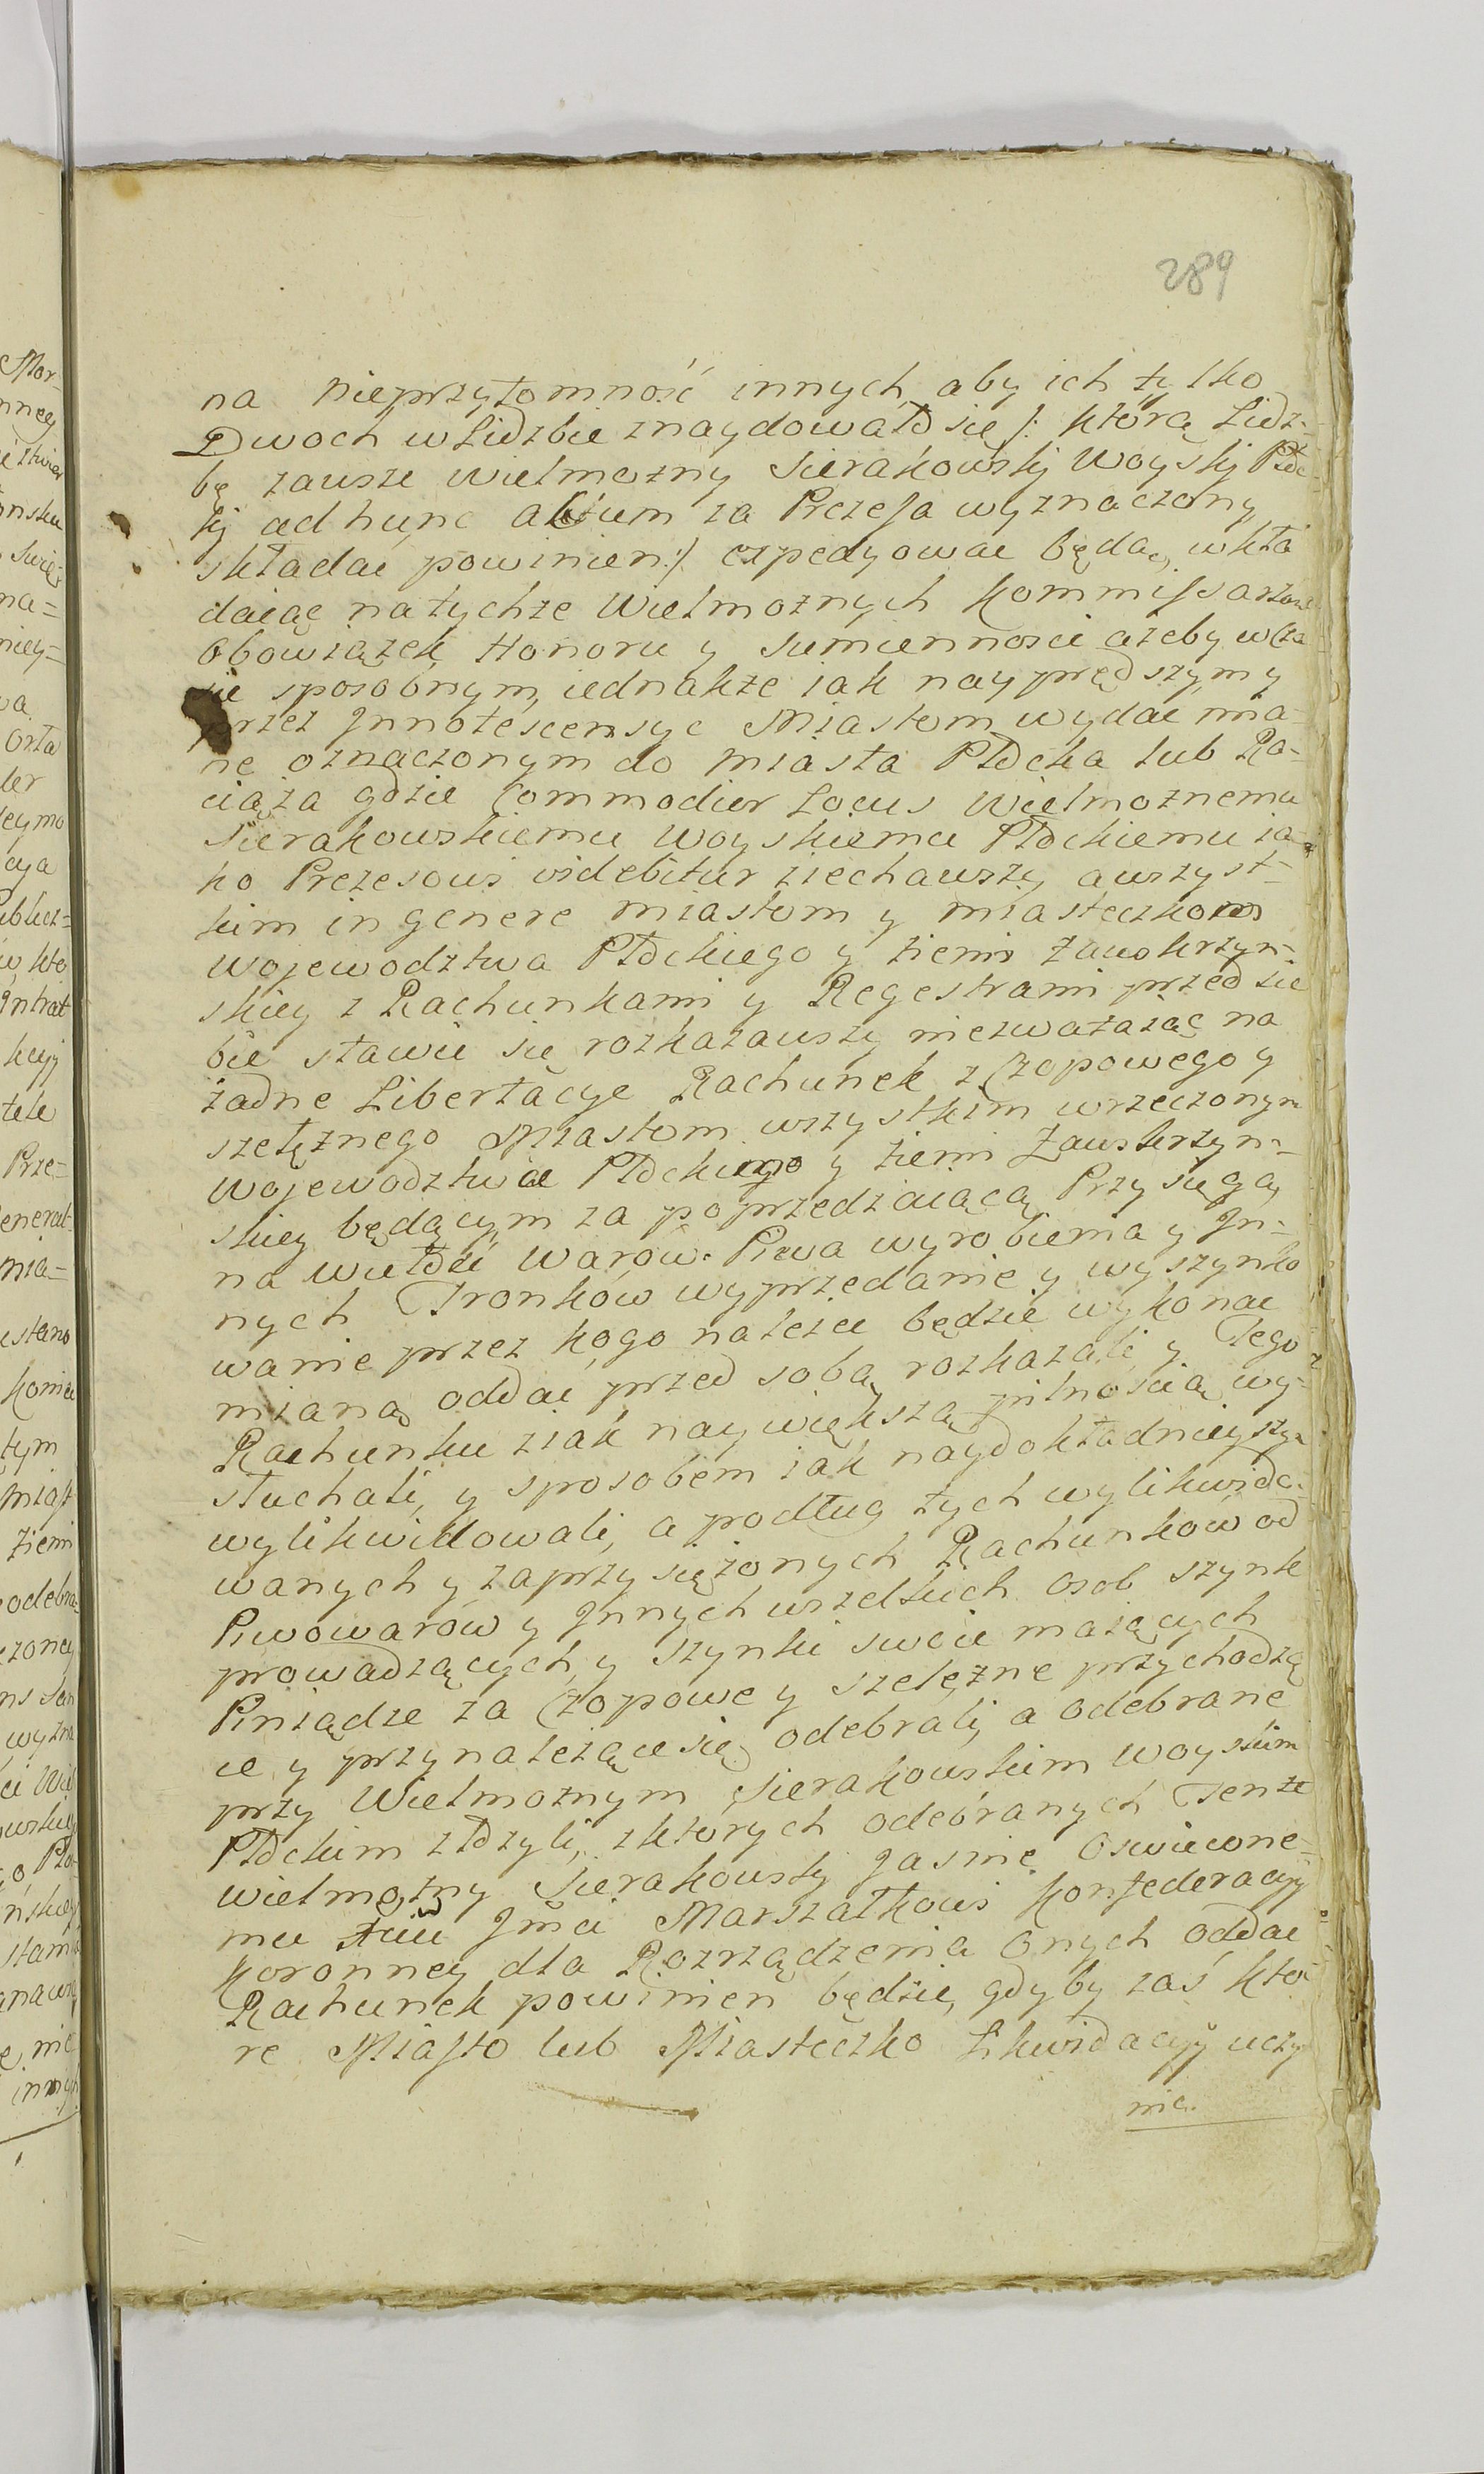 289
na nieprzytomność innych, aby ich tylko
Dwoch w Lidzbie znaydowało się /: którą Lidz-
bę zausze Wielmozny Sierakowskj Woyskj Płoc
kj ad hunc actum za Prezesa wyznaczony
składac powinien :/ expedyowac będą, wkła
daiąc na tychze Wielmoznych Kommissarzow
Obowiązek Honoru y Sumiennosci azeby w cza
sie sposobnym, iednakze iak nayprędszym y
przez Jnnotescensye Miastom wydac mia-
ne oznaczonym do miasta Płocka lub Ra-
ciąża gdzie Commodior Locus Wielmoznemu
Sierakowskiemu Woyskiemu Płockiemu ia-
ko Prezesowi videbitur ziechawszy, a wszyst-
kim in genere miastom y miasteczkom
Wojewodztwa Płockiego y ziemi Zawskrzyn-
skiey z Rachunkami y Regestrami przed sie
bie stawic się rozkazawszy niezważaiąc na
żadne Libertacye Rachunek z Czopowego y
szelężnego Miastom wszystkim wrzeczonym
Wojewodztwie Płockiego y ziemi Zawskrzyn-
skiey będącym za poprzedzaiącą Przysięgą
na wielość warów Piwa wyrobienia y Jn-
nych Tronków wyprzedanie y wyszynko
wanie przez kogo nalezec będzie wykonac
mianą oddac przed sobą rozkazali, y Tego
Rachunku z iak naywiększą pilnością wy-
słuchali, y sposobem iak naydokładnieyszym
wylikwidowali, a podług tych wylikwido-
wanych y zaprzysiężonych Rachunków od
Piwowarów y Jnnych wszelkich Osob szynk
prowadzących, y szynki swoie maiących
Piniądze za Czopowe y szelężne przychodzą
ce y przynalezące się odebrali, a odebrane
przy Wielmoznym Sierakowskim Woyskim
Płockim złozyli, z których odebranych Tenze
Wielmozny Sierakowskj Jasnie Oswiecone-
mu Jmci Marszałkowi Konfederacyi
Koronney dla Rozrządzenia Onych oddac
Rachunek powinien będzie, gdyby zaś któ-
re Miasto lub Miasteczko Likwidacyi uczy
nic.